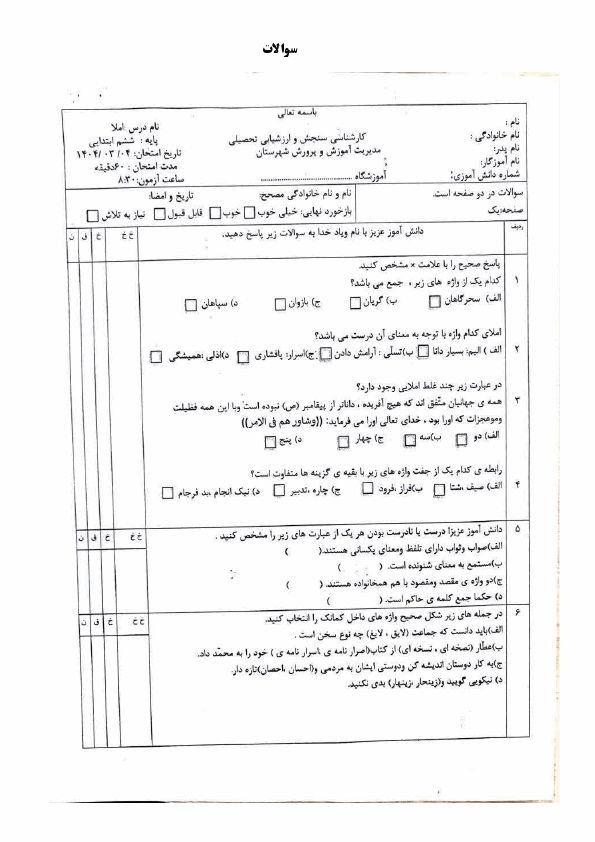 سوالات
باسمه تعالی
نام :
نام خانوادگی :
نام پدر:
نام آموزگار:
شماره دانش آموزی:
کارشناسی سنجش و ارزشیابی تحصیلی
مدیریت آموزش و پرورش شهرستان
آموزشگاه ..............................
نام درس :املا
پایه : ششم ابتدایی
تاریخ امتحان: ۰۴/ ۰۳ /۱۴۰۴
مدت امتحان : ۶۰دقیقه
ساعت آزمون: ۸:۳۰
سوالات در دو صفحه است.
صفحه:یک
نام و نام خانوادگی مصحح: تاریخ و امضا:
بازخورد نهایی: خیلی خوب خوب قابل قبول نیاز به تلاش
ردیف
دانش آموز عزیز با نام ویاد خدا به سوالات زیر پاسخ دهید.
خ خ خ ق ن
پاسخ صحیح را با علامت × مشخص کنید.
۱ کدام یک از واژه های زیر ، جمع می باشد؟
الف) سحرگاهان ب) گریان ج) بازوان د) سپاهان
املای کدام واژه با توجه به معنای آن درست می باشد؟
۲ الف ) الیم: بسیار دانا ب)تسلّی : آرامش دادن ج)اسرار: پافشاری د)اذلی :همیشگی
در عبارت زیر چند غلط املایی وجود دارد؟
۳ همه ی جهانیان متّفق اند که هیچ آفریده ، داناتر از پیقامبر (ص) نبوده است وبا این همه فظیلت
وموعجزات که اورا بود ، خدای تعالی اورا می فرماید: ((وشاور هم فی الامر))
الف) دو ب)سه ج) چهار د) پنج
رابطه ی کدام یک از جفت واژه های زیر با بقیه ی گزینه ها متفاوت است؟
۴ الف) صیف ،شتا ب)فراز ،فرود ج) چاره ،تدبیر د) نیک انجام ،بد فرجام
۵ دانش آموز عزیز! درست یا نادرست بودن هر یک از عبارت های زیر را مشخص کنید .
خ خ خ ق ن
الف)صواب وثواب دارای تلفظ ومعنای یکسانی هستند.( )
ب)مستمع به معنای شنونده است. ( )
ج)دو واژه ی مقصد ومقصود با هم همخانواده هستند. ( )
د) حکما جمع کلمه ی حاکم است. ( )
۶ در جمله های زیر شکل صحیح واژه های داخل کمانک را انتخاب کنید.
خ خ خ ق ن
الف)باید دانست که جماعت (لایق ، لایغ) چه نوع سخن است .
ب)عطّار (نصخه ای ، نسخه ای) از کتاب(اصرار نامه ی ،اسرار نامه ی ) خود را به محمّد داد.
ج)به کار دوستان اندیشه کن ودوستی ایشان به مردمی و(احسان ،احصان)تازه دار.
د) نیکویی گویید و(زینحار ،زینهار) بدی نکنید.